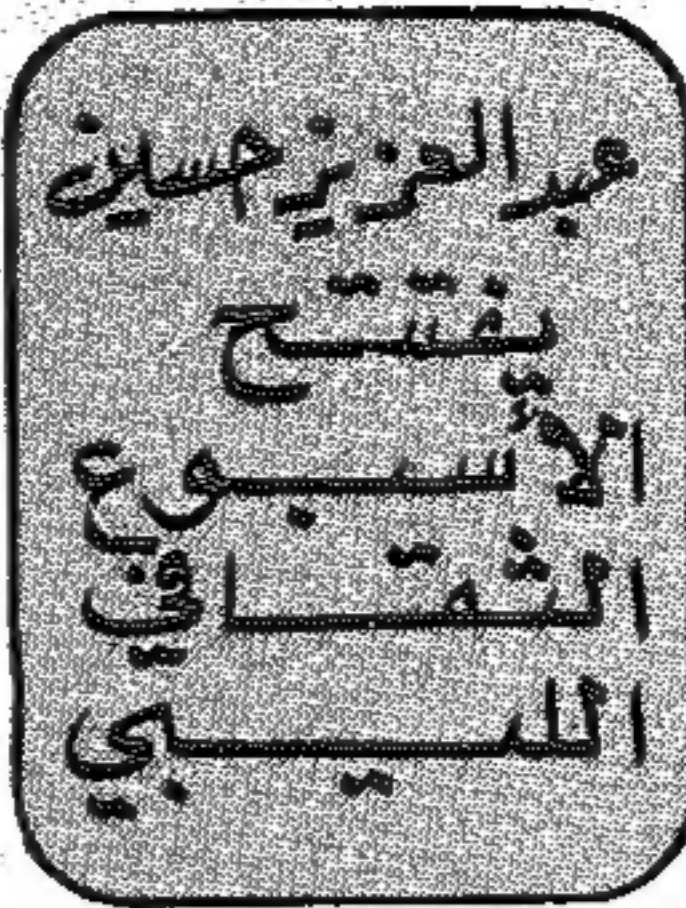 عبد العزيز حسين
يفتتح
الأسبوع
الثقافي
الليبي